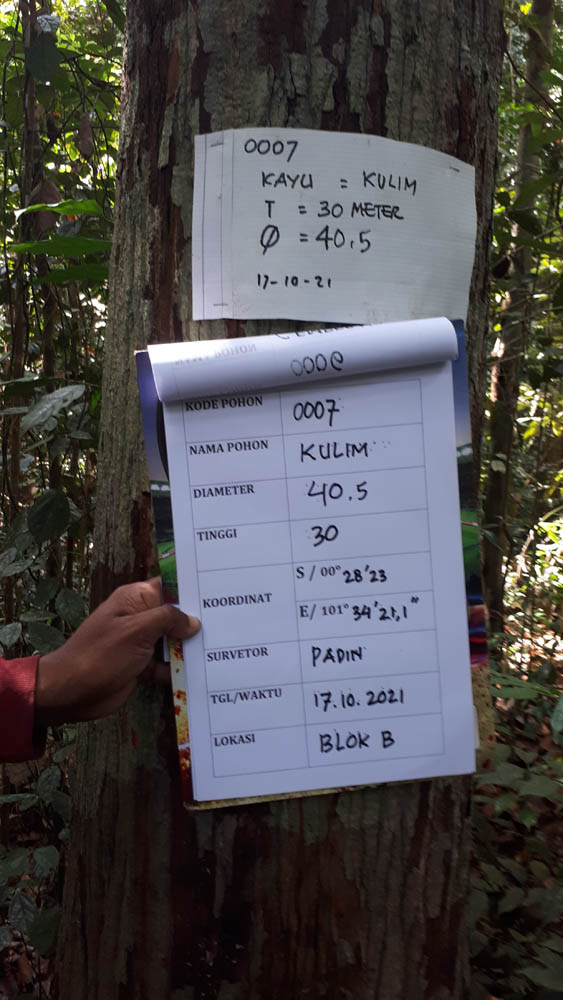 0007
KAYU = KULIM
T = 30 METER
Ø = 40.5
17-10-21
KODE POHON 0007
NAMA POHON KULIM
DIAMETER 40.5
TINGGI 30
KOORDINAT S / 00° 28'23
E/ 101° 34'21,1"
SURVETOR PADIN
TGL/WAKTU 17.10.2021
LOKASI BLOK B